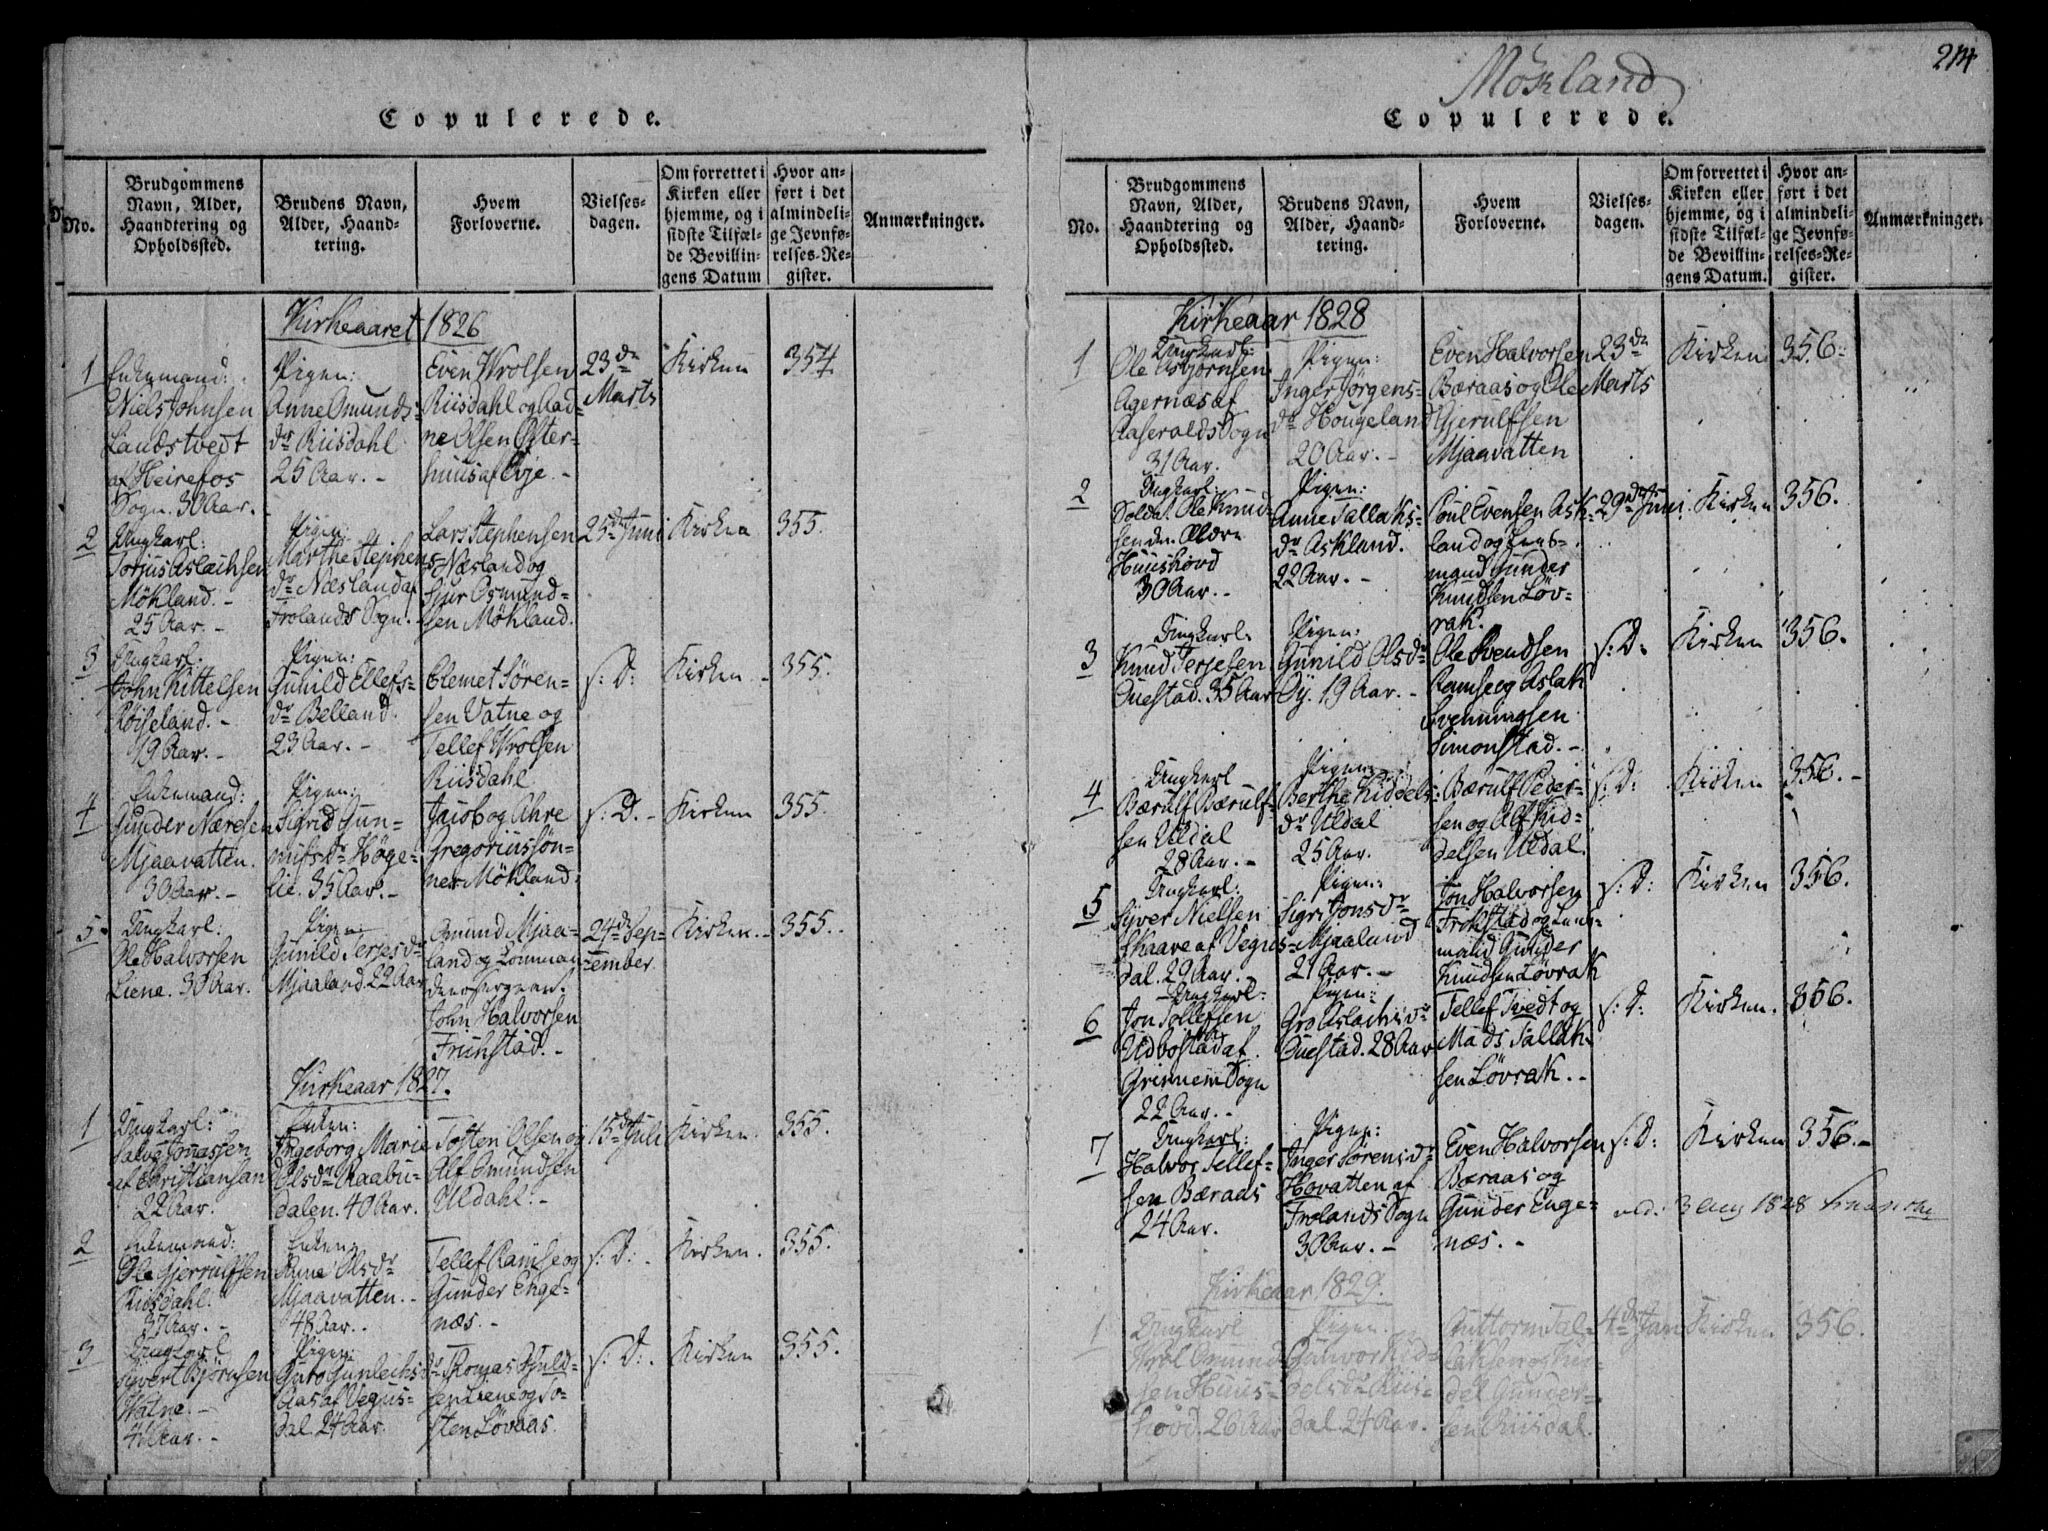 Copulerede.
No.
Brudgommens
Navn, Alder,
Haandtering og
Opholdssted.
Brudens Navn,
Alder, Haand-
tering.
Hvem
Forloverne.
Vielses-
dagen.
Om forrettet i
Kirken eller
hjemme, og i
sidste Tilfæl-
de Bevillin-
gens Datum
Hvor an-
ført i det
almindeli-
ge Jevnfø-
relses-Re-
gister.
Anmærkninger.
Kirkeaaret 1826
1
Enkemand:
Niels Johnsen
Landstvedt
af Heirefos
Sogn. 30 Aar.
Pigen:
Anne Omunds-
dr Riisdahl
25 Aar. -
Even Wrolsen
Riisdahl og Aad-
ne Olsen Øster-
huus af Evje. -
23de
Marts
Kirken
354
2
Ungkarl:
Torjus Aslachsen
Mökland. -
25 Aar. -
Pigen:
Marthe Stephens
dr Næsland af
Frolands Sogn.
Lars Stephensen
Næsland og
Sjur Osmund-
sen Mökland.
25de Juni
Kirken
355.
3
Ungkarl.
John Kittelsen
Röiseland. -
49 Aar. -
Pigen:
Gunild Ellefs-
dr Belland.
23 Aar. -
Clemet Sören-
sen Vatne og
Tellef Wrolsen
Riisdahl
s: D:
Kirken -
355.
4
Enkemand:
Gunder Næresen
Mjaavatten.
30 Aar. -
Pigen:
Sigrid Gun-
nufsdr Höge-
lie. 35 Aar. -
Jacob og Ahre
Gregoriussön-
ner Mökland.
s: D. -
Kirken
355.
5.
Ungkarl:
Ole Halvorsen
Liene. 30 Aar.
Pigen:
Gunild Terjesdr
Mjaaland. 22 Aar
Omund Mjaa-
land og Comman-
John Halvorsen
Frihstad. -
24de Sep-
tember
Kirken. -
355.
Kirkeaar 1827.
1
Ungkarl:
Salve Jonassen
af Christiansan
22 Aar.
Enken:
Ingeborg Marie
Olsdr Raabu-
dalen. 40 Aar.
Tosten Olsen og
Alf Omundsen
Uldahl. -
15de Juli
Kirken.
355.
2
Enkemand:
Ole Gjerrulfsen
Riisdahl.
37 Aar. -
Enken:
Anne Olsdr
Mjaavatten. -
48 Aar. -
Tellef Ramse og
Gunder Enge-
næs. -
s: D: -
Kirken.
355.
3
Ungkarl
Sjvert Björnsen
Watne. -
41 Aar. -
Pigen:
Guro Gunlechsdr
Aas af Vegus-
dal. 24 Aar.
Thomas Guld-
sen Liene og To-
sten Lövaas
s: D: -
Kirken
355.
Mökland
214
Copulerede.
No.
Brudgommens
Navn, Alder,
Haandtering og
Opholdssted.
Brudens Navn,
Alder, Haand-
tering.
Hvem
Forloverne.
Vielses-
dagen.
Om forrettet i
Kirken eller
hjemme, og i
sidste Tilfæl-
de Bevillin-
gens Datum.
Hvor an-
ført i det
almindeli-
ge Jevnfø-
relses-Re-
gister.
Anmærkninger.
Kirkeaar 1828
1
Ungkarl:
Ole Asbjørnsen
Agernæs af
Aaseralds Sogn
31 Aar.
Pigen:
Inger Jörgens-
dr Hougeland
20 Aar. -
Even Halvorsen
Bæraas og Ole
Gjerulfsen
Mjaavatten
23de
Marts
Kirken
356.
2
Ungkarl:
Soldat. Ole Knud-
sen den Ældre
Huushovd
30 Aar. -
Pigen:
Anne Tallaks-
dr Askland.
22 Aar. -
Poul Evensen Ask-
land og Lens-
mand Gunder
Knudsen Löv-
rak.
29de Juni.
Kirken
356.
3
Ungkarl.
Knud Terjesen
Ouestad. 35 Aar
Pigen:
Gunild Olsdr
Öy. 19 Aar. -
Ole Svendsen
Ramse og Aslak
Svenningsen
Simonstad. -
s: D:
Kirken
356.
4
Ungkarl
Bærulf Bærulf-
sen Uldal
28 Aar. -
Pigen:
Berthe Kiddels-
dr Uldal
25 Aar.
Bærulf Peder-
sen og Alf Kid-
delsen Uldal.
s: D:
Kirken
356. -
5
Ungkarl:
Sjver Nielsen
Skaare af Vegus-
dal. 29 Aar.
Pigen:
Sigri Jonsdr
Mjaaland
21 Aar. -
Jon Halvorsen
Frihstad og Lens-
mand Gunder
Knudsen Lövrak
s: D:
Kirken
356.
6
Ungkarl:
Jon Tollefsen
Udbostad af
Grinnem Sogn
22 Aar. -
Pigen:
Gro Aslachsdr
Ouestad. 28 Aar
Tellef Tvedt og
Mads Tallak-
sen Lövrak. -
s: D:
Kirken.
356.
7
Ungkarl:
Halvor Tellef-
sen Bæraas
24 Aar.
Pigen:
Inger Sörensdr
Hovatten af
Frolands Sogn
30 Aar. -
Even Halvorsen
Bæraas og
Gunder Enge-
næs. -
s: D:
Kirken
356. -
3 Aug 1828
Kirkeaar 1829.
1
Ungkarl
Wrol Omund-
sen Huus-
hovd. 26 Aar
Pigen.
Gunvor Kid-
delsdr Riis-
dal 24 Aar.
Guttorm Tal-
laksen og Kid-
del Gunder-
sen Riisdal.
4de Jan
Kirken
356.